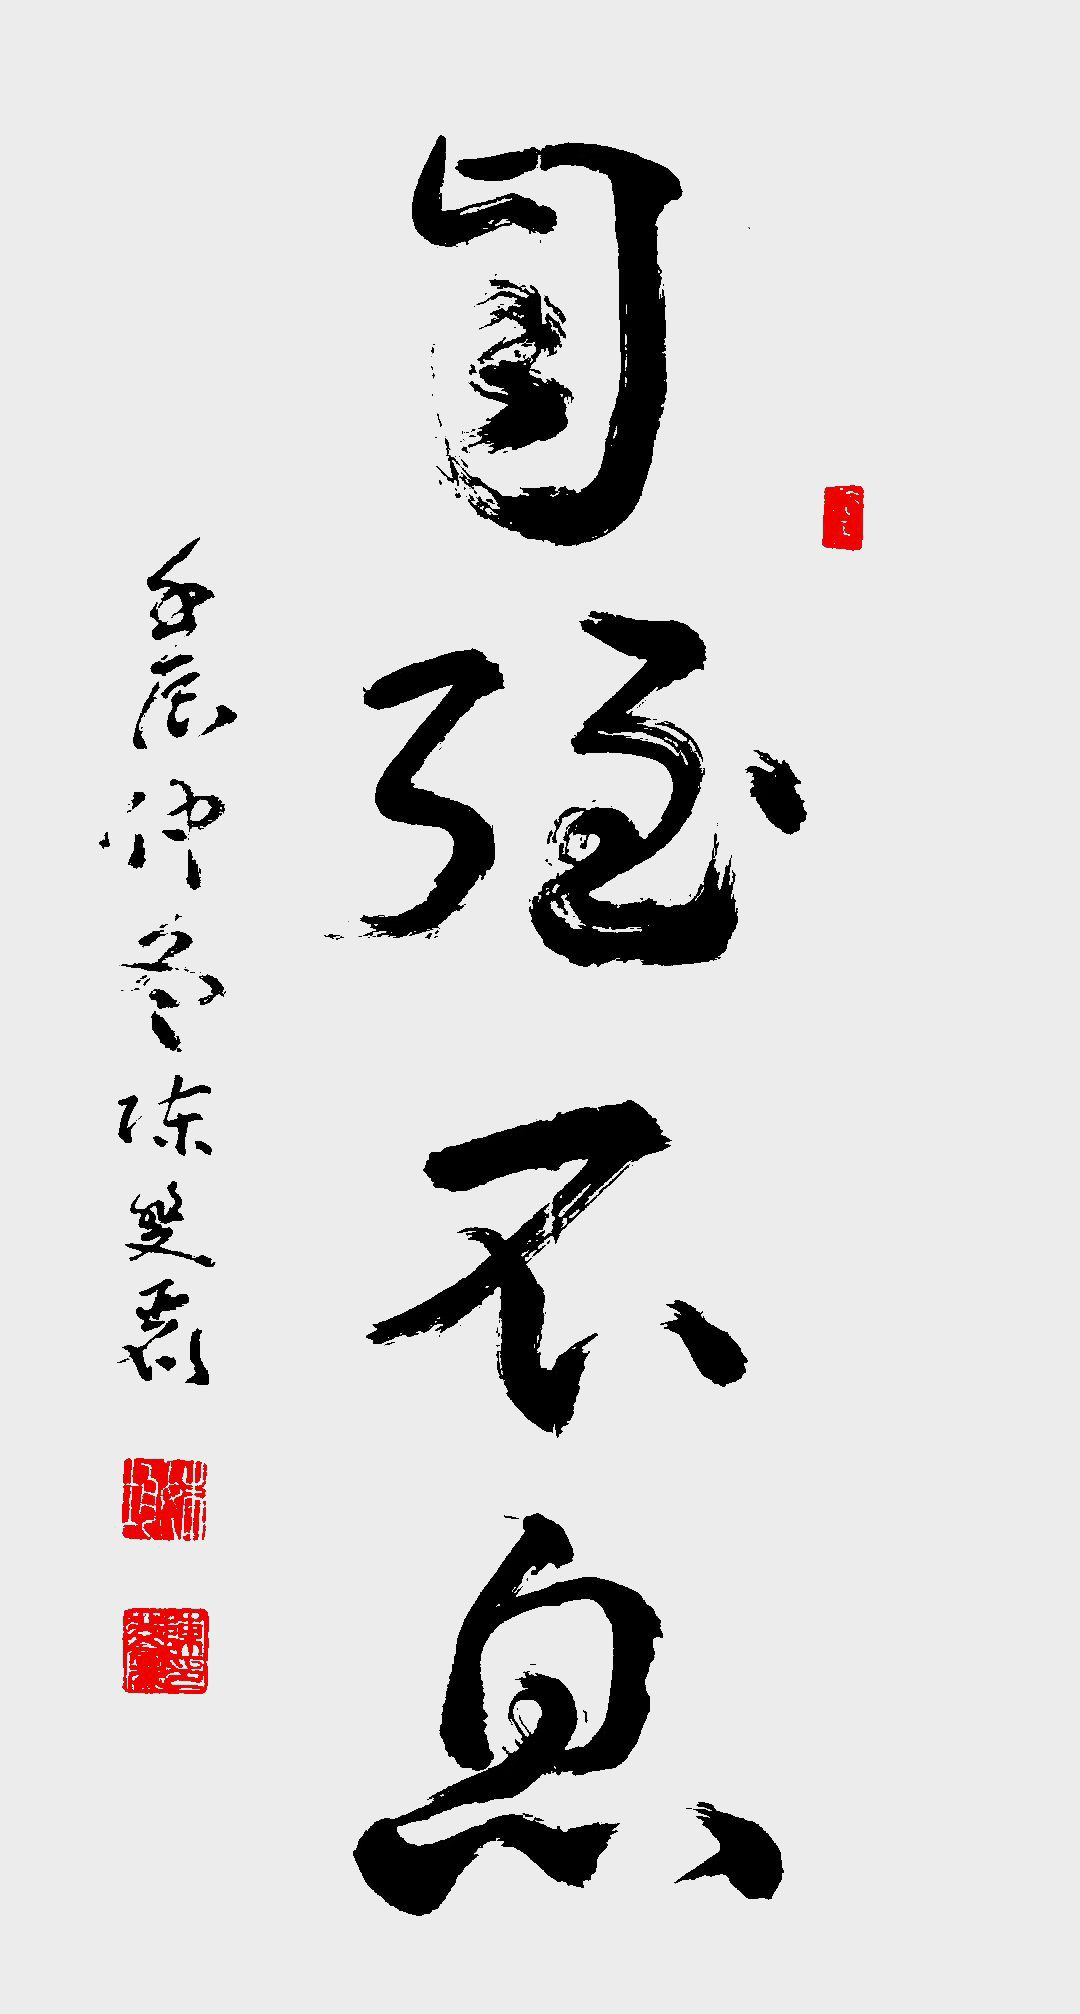 自强不息
壬辰仲冬陈双